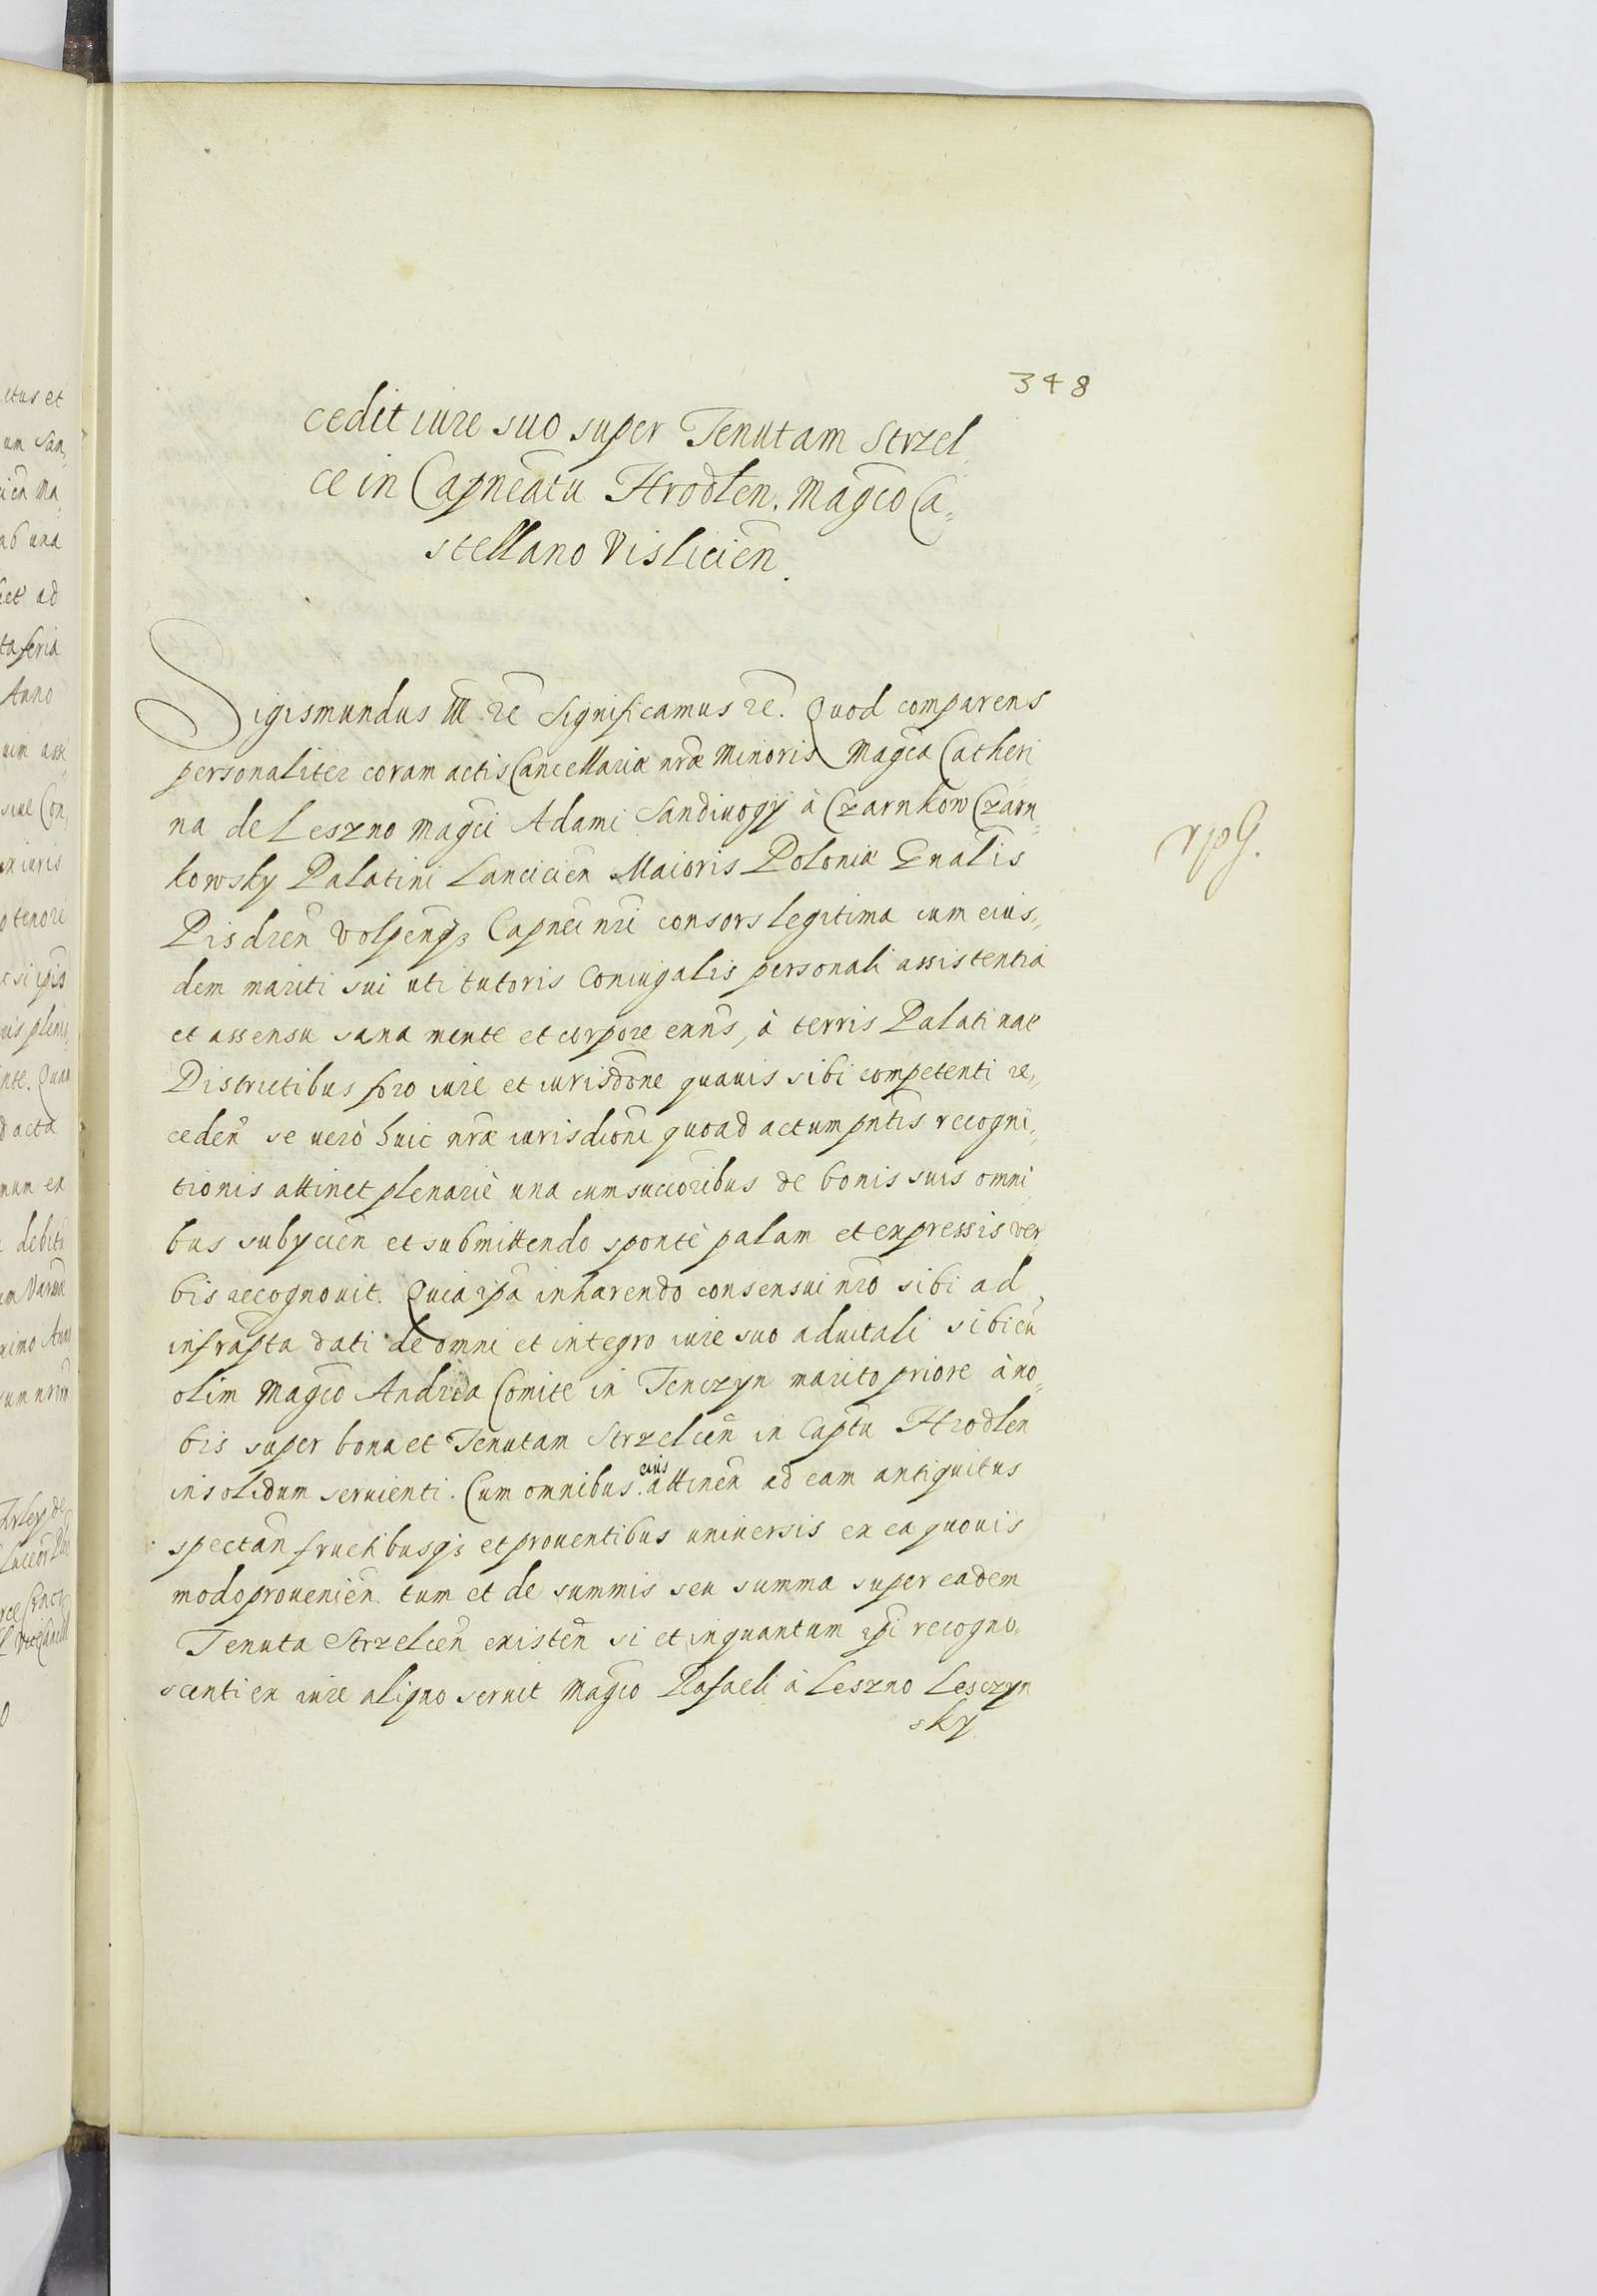 348
cedit iure suo super Tenutam Strzel
ce in Capneatu Hrodlen. Magco Ca=
stellano Vislicien.
Sigismundus III. rc̃ Significamus rc̃. Quod comparens
personaliter coram actis Cancellariæ nræ Minoris Magca Catheri
na de Leszno Magci Adami Sandivogÿ à Czarnkow Czarn=
kowsky Palatini Lancicien Maioris Poloniæ Gnalis
Pisdren Volpenqз Capnei nri consors legitima cum eius,,
dem mariti sui uti tutoris Coniugalis personali assistentia
et assensu sana mente et corpore exns, à terris Palatinae
Districtibus foro iure et iurisdone quavis sibi competenti re,,
ceden se verò huic nræ iurisdioni quoad actum pntis recogni,,
tionis attinet plenariè una cum succoribus de bonis suis omni
bus subycien et submittendo spontè palam et expressis ver
bis recognovit. Quia ipa inhærendo consensui nro sibi ad
infrapta dati de omni et integro iure suo advitali sibi cũ
olim Magco Andrea Comite in Tenczyn marito priore à no=
bis super bona et Tenutam Strzelcen in Captu Hrodlen
in solidum servienti. Cum omnibus eius attinen ad eam antiquitus
spectan fructibusqз et proventibus universis ex ea quovis
modo provenien tum et de summis seu summa super eadem
Tenuta Strzelcen existen si et inquantum ipi recogno=
scenti ex iure aliquo servit Magco Rafaeli à Leszno Lesczyn
sky